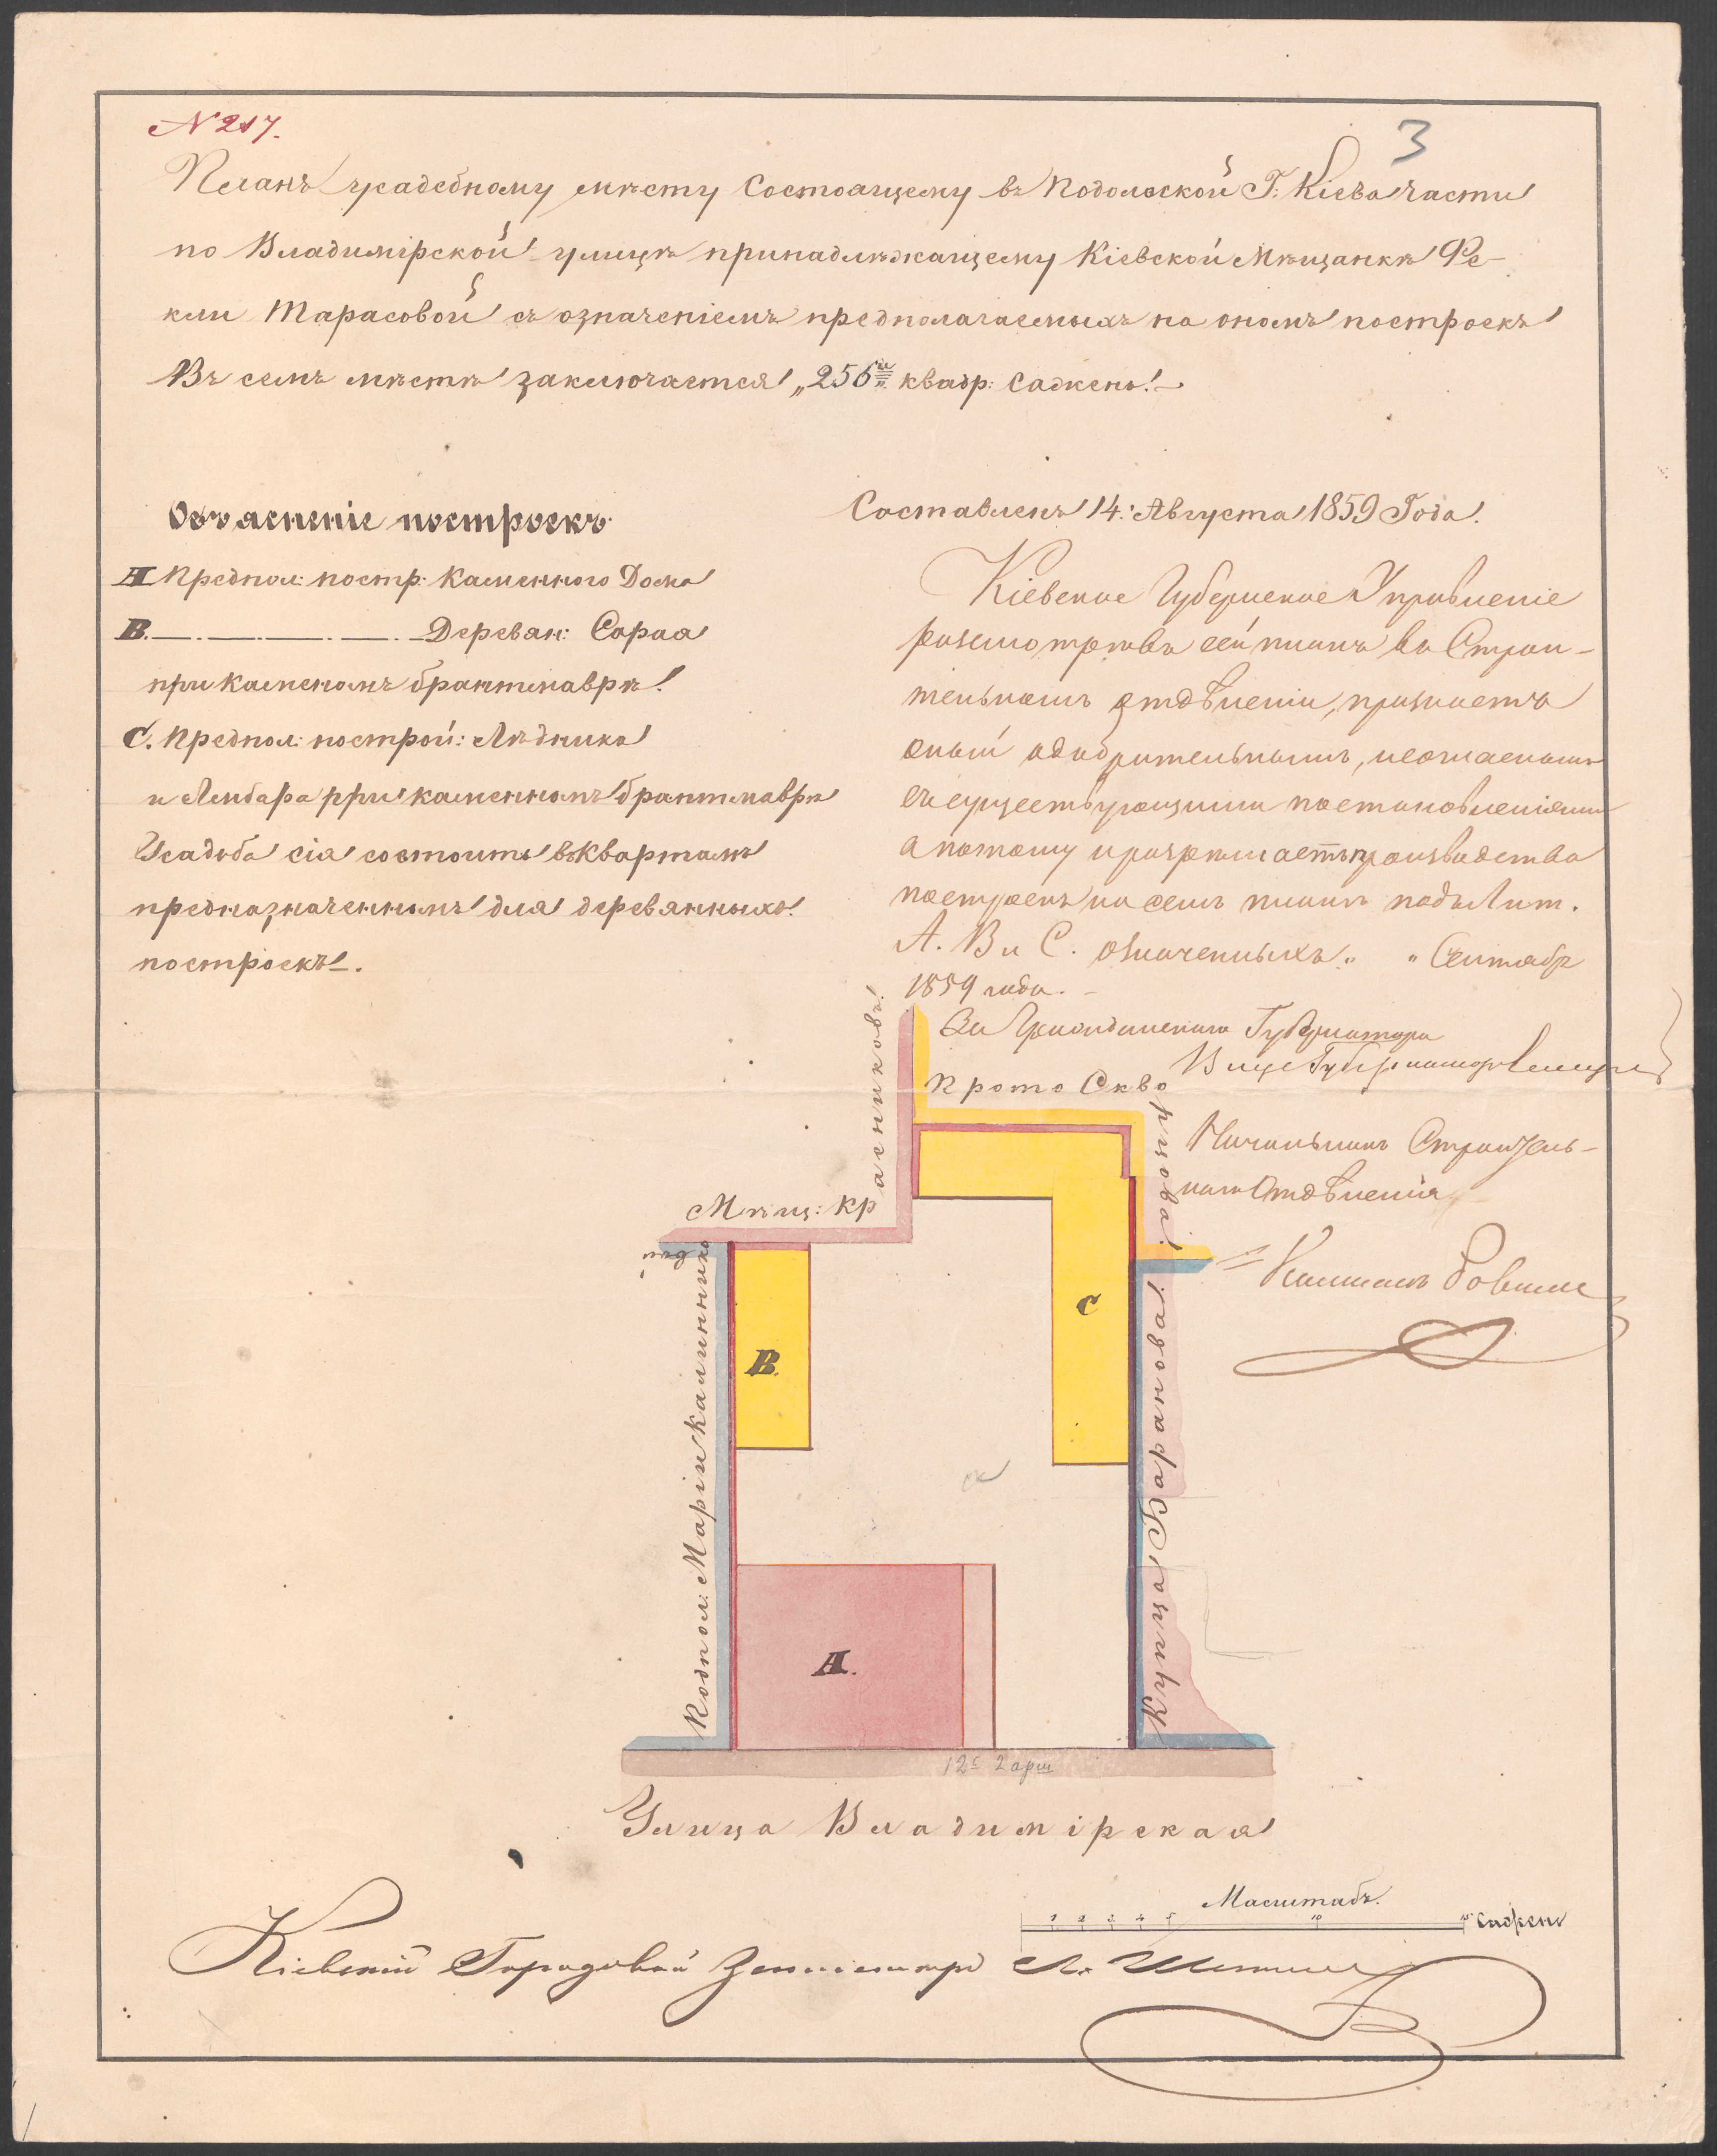 N 217.
3
Планъ усадебному мѣсту состоящему въ Подольской Г: Кіева части
по Владимірской улицѣ принадлѣжащему Кіевской Мѣщанкѣ Фе-
кли Тарасовой съ означеніемъ предполагаемыхъ на ономъ построекъ
Въ семъ мѣстѣ заключается „256 квадр: саженъ.
Объясненіе построекъ.
А Предпол: постр: Каменного Дома
В. Деревян: Сарая
при каменомъ брантмаврѣ.
С. Предпол: построй: Лѣдника
и Амбара при каменномъ брантмаврѣ
Усадьба сія состоитъ въ Кварталѣ
предназначеннымъ для деревянныхъ
построекъ.
Составленъ 14: Августа 1859 Года.
Кіевское Губернское Управленіе
разсмотрѣвъ сей планъ въ Строи-
тельномъ отдѣленіи, признаетъ
оный одобрительнымъ, согласнымъ
съ существующими постановленіями
а потому и разрѣшаетъ производство
построекъ на семъ планѣ подъ Лит.
А. В и С. означенныхъ „ „ Сентябр
1859 года.
За Гражданскаго Губернатора
Вице Губернаторъ
Прото Скво
рцова.
Мѣщ: Кр
асикова.
Начальникъ Строитель-
наго Отдѣленія
Капитанъ
Подпол: Маріи Калинников
С
В.
А.
Купца Баранова.
12с 2 арш
Улица Владимірская
Масштабъ.
1 2 3 4 5 10 15 саженъ
Кіевскій Городовой Землемѣръ